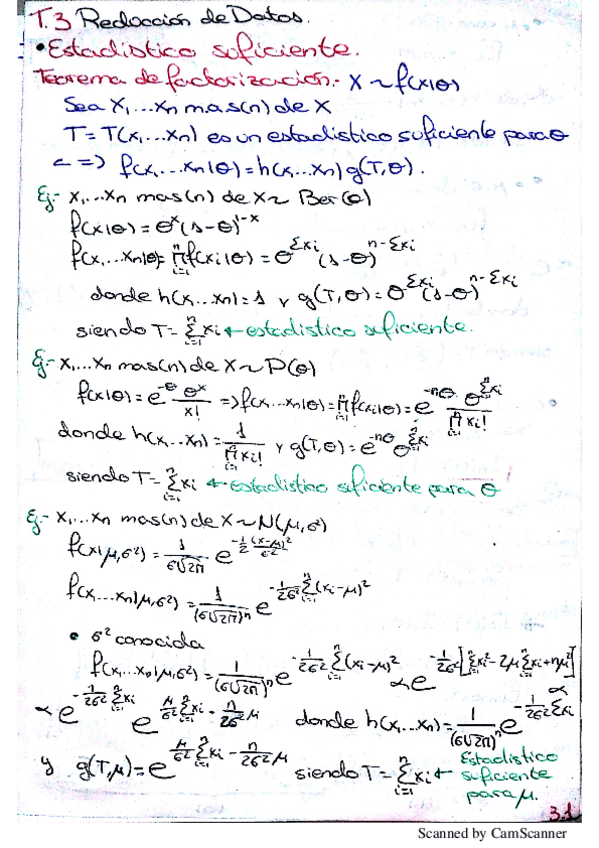 T.3 Reducción de Datos.
• Estadístico suficiente.
Teorema de factorización.- X ~ f(x|θ)
Sea X₁...Xn mas(n) de X
T = T(x₁...xn) es un estadístico suficiente para θ
<=> f(x₁...xn|θ) = h(x₁...xn) g(T,θ).
Ej.- x₁,...xn mas(n) de X ~ Ber(θ)
f(x|θ) = θ^x (1-θ)^{1-x}
f(x₁...xn|θ) = ∏_{i=1}^n f(xi|θ) = θ^{Σxi} (1-θ)^{n-Σxi}
donde h(x₁...xn) = 1 y g(T,θ) = θ^{Σxi} (1-θ)^{n-Σxi}
siendo T = Σ_{i=1}^n xi ← estadístico suficiente.
Ej.- x₁,...xn mas(n) de X ~ P(θ)
f(x|θ) = e^{-θ} θ^x/x! => f(x₁...xn|θ) = ∏_{i=1}^n f(xi|θ) = e^{-nθ} θ^{Σ_{i=1}^n xi}/∏_{i=1}^n xi!
donde h(x₁...xn) = 1/∏_{i=1}^n xi! y g(T,θ) = e^{-nθ} θ^{Σ_{i=1}^n xi}
siendo T = Σ_{i=1}^n xi ← estadístico suficiente para θ
Ej.- x₁,...xn mas(n) de X ~ N(μ,σ²)
f(x|μ,σ²) = 1/(σ√2π) e^{-1/2 (x-μ)²/σ²}
f(x₁...xn|μ,σ²) = 1/(σ√2π)^n e^{-1/2σ² Σ_{i=1}^n (xi-μ)²}
• σ² conocida
f(x₁...xn|μ,σ²) = 1/(σ√2π)^n e^{-1/2σ² Σ_{i=1}^n (xi-μ)²} α e^{-1/2σ² [Σ_{i=1}^n xi² - 2μ Σ_{i=1}^n xi + nμ²]} α
α e^{-1/2σ² Σ_{i=1}^n xi} e^{μ/σ² Σ_{i=1}^n xi - n/2σ² μ} donde h(x₁...xn) = 1/(σ√2π)^n e^{-1/2σ² Σ_{i=1}^n xi}
y g(T,μ) = e^{μ/σ² Σ_{i=1}^n xi - n/2σ² μ} siendo T = Σ_{i=1}^n xi ← Estadístico suficiente para μ.
3.1
Scanned by CamScanner